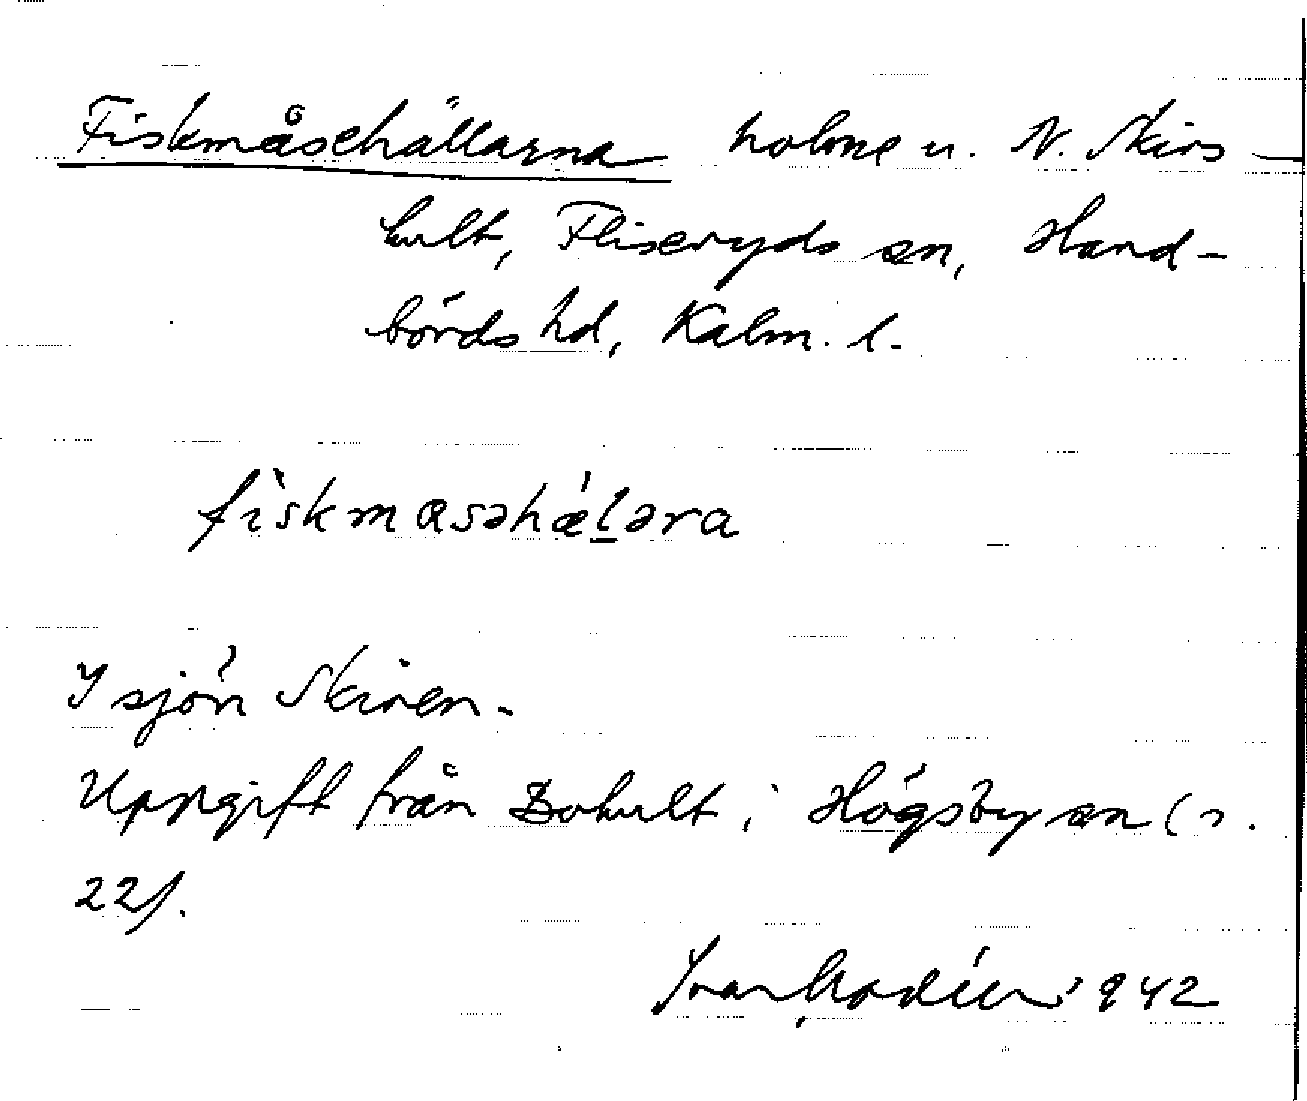 Fiskmåsehällarna holme u. N. Skirs-
hult, Fliseryds sn, Hand-
börds hd, Kalm. l.
fiskmɑsəhæ̀lərа
I sjön Skiren.
Uppgift från Bohult i Högsby sn (s.
22).
Ivar Modéer 1942